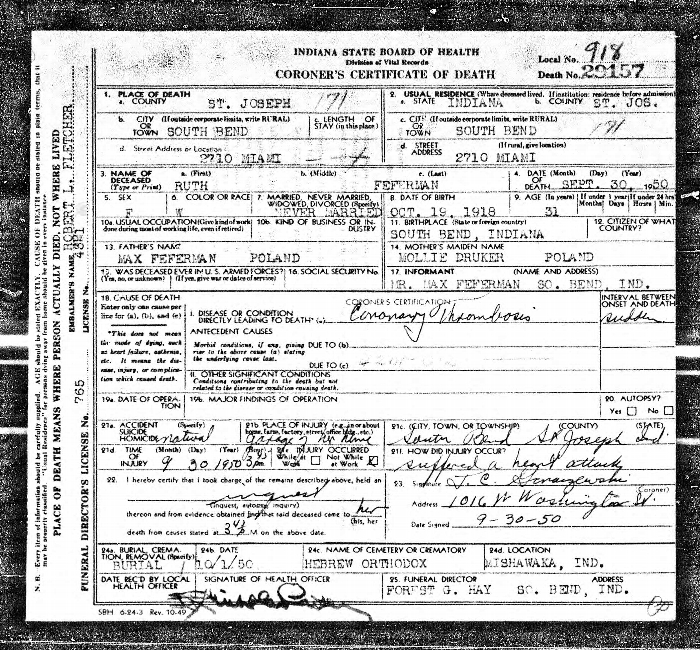 INDIANA STATE BOARD OF HEALTH
Division of Vital Records
CORONER'S CERTIFICATE OF DEATH
Local No. 918
Death No. 29157
1. PLACE OF DEATH
a. COUNTY ST. JOSEPH 171
2. USUAL RESIDENCE (Where deceased lived. If institution: residence before admission)
a. STATE INDIANA b. COUNTY ST. JOS.
b. CITY OR TOWN (If outside corporate limits, write RURAL) SOUTH BEND
c. LENGTH OF STAY (in this place)
c. CITY OR TOWN (If outside corporate limits, write RURAL) SOUTH BEND 171
d. Street Address or Location 2710 MIAMI
d. STREET ADDRESS (If rural, give location) 2710 MIAMI
3. NAME OF DECEASED (Type or Print)
a. (First) RUTH
b. (Middle)
c. (Last) FEFERMAN
4. DATE OF DEATH (Month) (Day) (Year) SEPT. 30, 1950
5. SEX F
6. COLOR OR RACE W
7. MARRIED, NEVER MARRIED, WIDOWED, DIVORCED (Specify) NEVER MARRIED
8. DATE OF BIRTH OCT. 19. 1918
9. AGE (In years) 31
If under 1 year Months Days
If under 24 hrs Hours Min.
10a. USUAL OCCUPATION (Give kind of work done during most of working life, even if retired)
10b. KIND OF BUSINESS OR INDUSTRY
11. BIRTHPLACE (State or foreign country) SOUTH BEND, INDIANA
12. CITIZEN OF WHAT COUNTRY?
13. FATHER'S NAME MAX FEFERMAN POLAND
14. MOTHER'S MAIDEN NAME MOLLIE DRUKER POLAND
15. WAS DECEASED EVER IN U. S. ARMED FORCES? (Yes, no, or unknown) (If yes, give war or dates of service)
16. SOCIAL SECURITY No.
17. INFORMANT (NAME AND ADDRESS) MR. MAX FEFERMAN SO. BEND, IND.
18. CAUSE OF DEATH
Enter only one cause per line for (a), (b), and (c)
*This does not mean the mode of dying, such as heart failure, asthenia, etc. It means the disease, injury, or complication which caused death.
CORONER'S CERTIFICATION
I. DISEASE OR CONDITION DIRECTLY LEADING TO DEATH* (a) Coronary Thrombosis
INTERVAL BETWEEN ONSET AND DEATH sudden
ANTECEDENT CAUSES
Morbid conditions, if any, giving rise to the above cause (a) stating the underlying cause last.
DUE TO (b)
DUE TO (c)
II. OTHER SIGNIFICANT CONDITIONS
Conditions contributing to the death but not related to the disease or condition causing death.
19a. DATE OF OPERATION
19b. MAJOR FINDINGS OF OPERATION
20. AUTOPSY? Yes No
21a. ACCIDENT SUICIDE HOMICIDE (Specify) natural
21b. PLACE OF INJURY (e.g. in or about home, farm, factory, street, office bldg., etc.) garage of her home
21c. (CITY, TOWN, OR TOWNSHIP) (COUNTY) (STATE) South Bend St Joseph Ind.
21d. TIME OF INJURY (Month) (Day) (Year) (Hour) 9 30 1950
21e. INJURY OCCURRED While at Work Not While at Work
21f. HOW DID INJURY OCCUR? suffered a heart attack
22. I hereby certify that I took charge of the remains described above, held an inquest
(inquest, autopsy, inquiry)
thereon and from evidence obtained find that said deceased came to her (his, her)
death from causes stated at M on the above date.
23. Signature (Coroner)
Address 1016 W Washington St.
Date Signed 9-30-50
24a. BURIAL, CREMATION, REMOVAL (Specify) BURIAL
24b. DATE 10/1/50
24c. NAME OF CEMETERY OR CREMATORY HEBREW ORTHODOX
24d. LOCATION MISHAWAKA, IND.
DATE REC'D BY LOCAL HEALTH OFFICER
SIGNATURE OF HEALTH OFFICER
25. FUNERAL DIRECTOR ADDRESS
FOREST G. HAY SO. BEND, IND.
SBH 6-24-3 Rev. 10-49
PLACE OF DEATH MEANS WHERE PERSON ACTUALLY DIED, NOT WHERE LIVED
ROBERT L. FLETCHER
EMBALMER'S NAME
FUNERAL DIRECTOR'S LICENSE No. 765
LICENSE No.